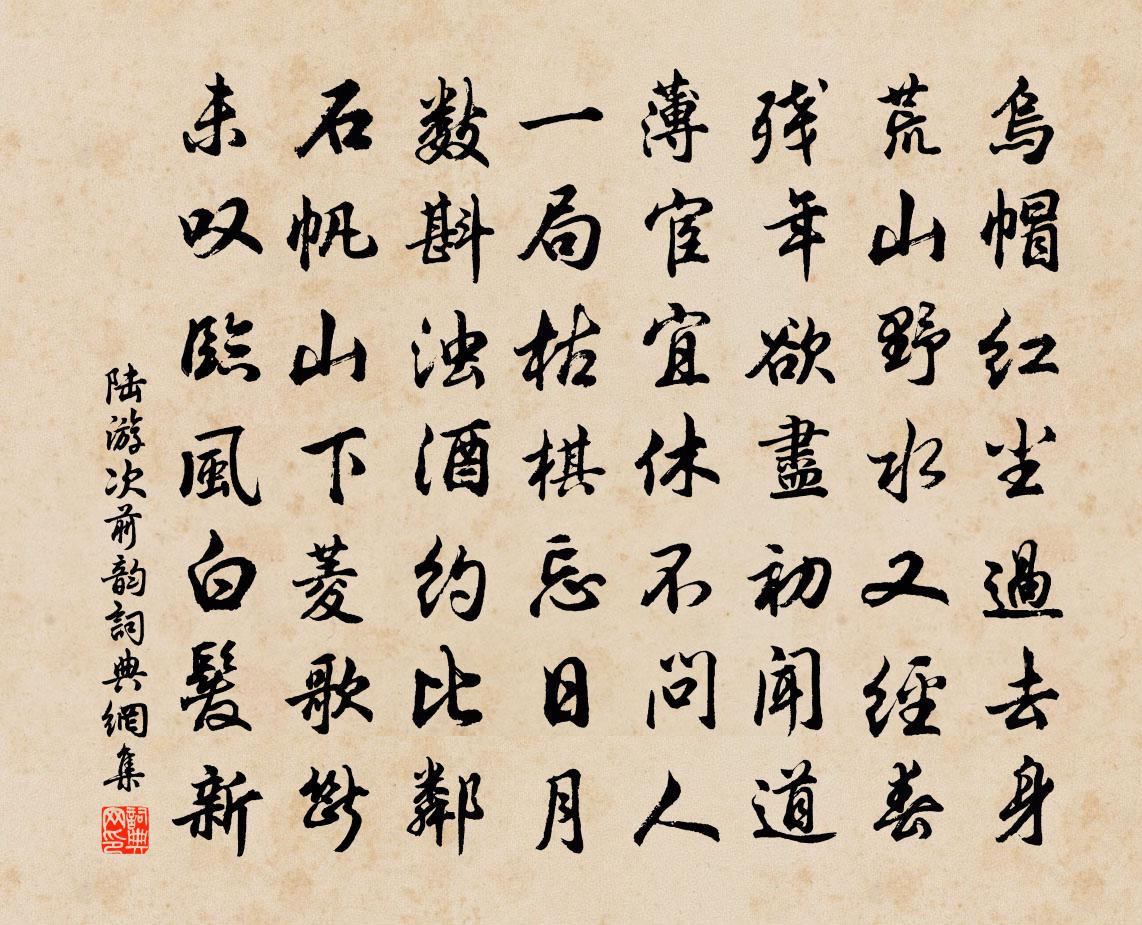 烏帽红尘過去身
荒山野水又經春
残年欲盡初闻道
薄宦宜休不问人
一局枯棋忘日月
数斟浊酒约比鄰
石帆山下菱歌断
未叹臨風白髪新
陆游次前韵詞典網集
詞典网印